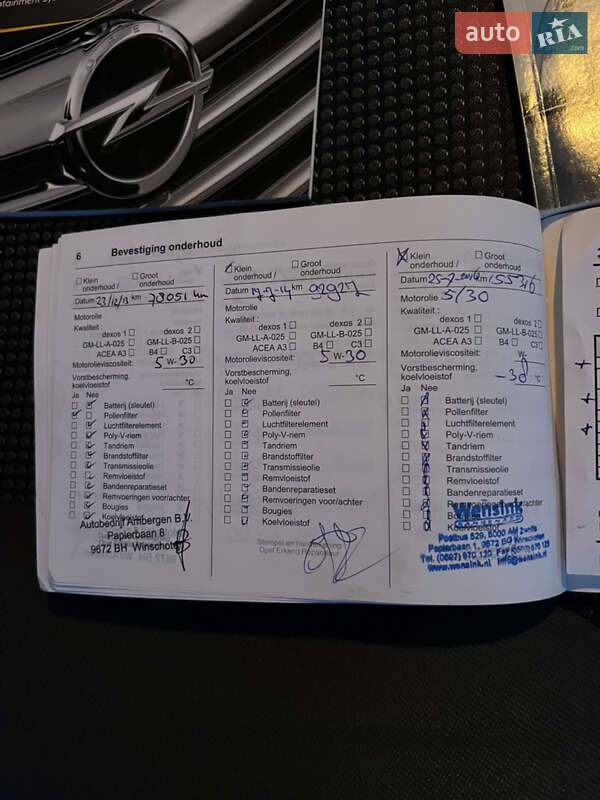 auto
RIA
.com
OPEL
6 Bevestiging onderhoud
Klein onderhoud /
Groot onderhoud
Datum 23/12/13 km 78051 km
Motorolie
Kwaliteit :
dexos 1
dexos 2
GM-LL-A-025
GM-LL-B-025
ACEA A3
B4
C3
Motorolieviscositeit: 5 W-30
Vorstbescherming,
koelvloeistof °C
Ja Nee
Batterij (sleutel)
Pollenfilter
Luchtfilterelement
Poly-V-riem
Tandriem
Brandstoffilter
Transmissieolie
Remvloeistof
Bandenreparatieset
Remvoeringen voor/achter
Bougies
Koelvloeistof
Autobedrijf Ambergen B.V.
Papierbaan 8
9672 BH Winschoten
Klein onderhoud /
Groot onderhoud
Datum km
Motorolie
Kwaliteit :
dexos 1
dexos 2
GM-LL-A-025
GM-LL-B-025
ACEA A3
B4
C3
Motorolieviscositeit: 5 W-30
Vorstbescherming,
koelvloeistof °C
Ja Nee
Batterij (sleutel)
Pollenfilter
Luchtfilterelement
Poly-V-riem
Tandriem
Brandstoffilter
Transmissieolie
Remvloeistof
Bandenreparatieset
Remvoeringen voor/achter
Bougies
Koelvloeistof
Stempel en
Opel Erkend Reparateur
Klein onderhoud /
Groot onderhoud
Datum km
Motorolie 5/30
Kwaliteit :
dexos 1
dexos 2
GM-LL-A-025
GM-LL-B-025
ACEA A3
B4
C3
Motorolieviscositeit: W-
Vorstbescherming,
koelvloeistof -38 °C
Ja Nee
Batterij (sleutel)
Pollenfilter
Luchtfilterelement
Poly-V-riem
Tandriem
Brandstoffilter
Transmissieolie
Remvloeistof
Bandenreparatieset
Wensink
Postbus 529, 8000 AM Zwolle
Papierbaan 1, 9672 BG Winschoten
www.wensink.nl